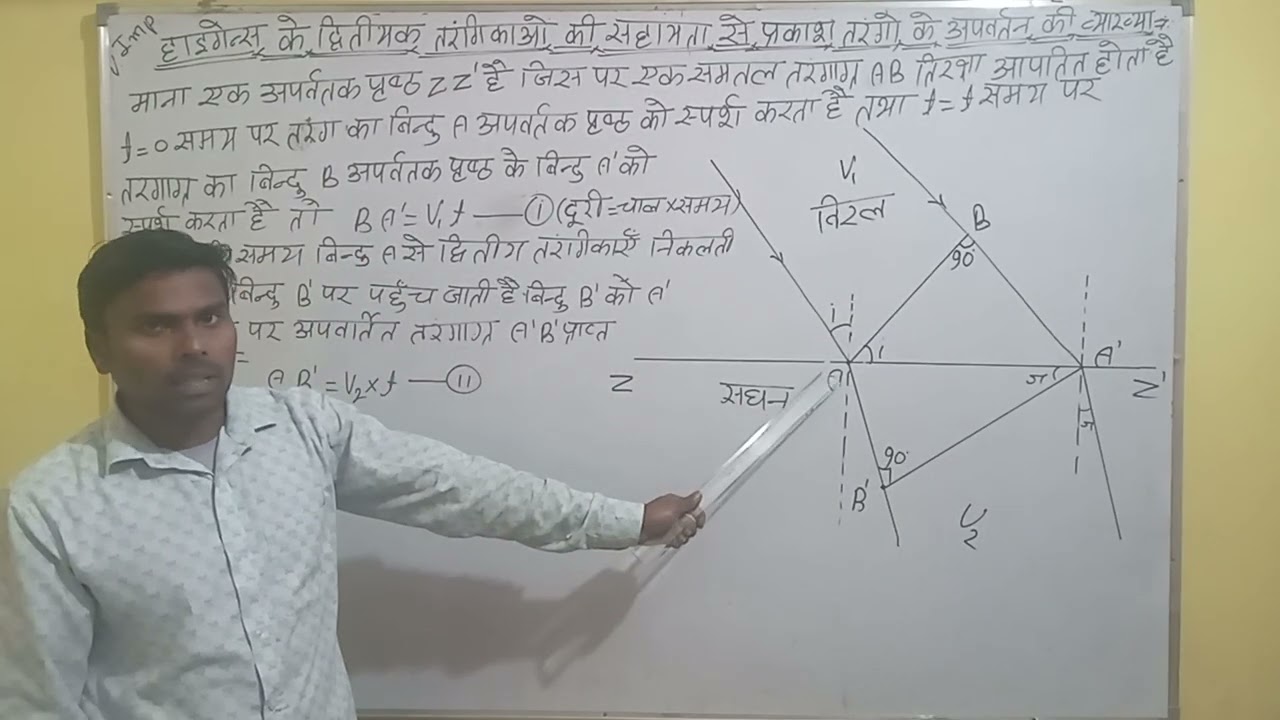 V.Imp
हाइगेन्स के द्वितीयक तरंगिकाओ की सहायता से प्रकाश तरंगो के अपवर्तन की व्याख्या :
माना एक अपर्वतक पृष्ठ ZZ' है जिस पर एक समतल तरंगाग्र AB तिरछा आपतित होता है
t=0 समय पर तरंग का बिन्दु A अपवर्तक पृष्ठ को स्पर्श करता है तथा t=t समय पर
तरंगाग्र का बिन्दु B अपर्वतक पृष्ठ के बिन्दु A' को
स्पर्श करता है तो BA' = V₁t — I (दूरी=चाल×समय)
समय बिन्दु A से द्वितीय तरंगिकाएँ निकलती
बिन्दु B' पर पहुँच जाती है बिन्दु B' को A'
पर अपवर्तित तरंगाग्र A'B' प्राप्त
=
AB' = V₂×t — II
V₁
विरल
B
90°
i
i
A
A'
Z
Z'
सघन
r
r
90°
B'
V₂